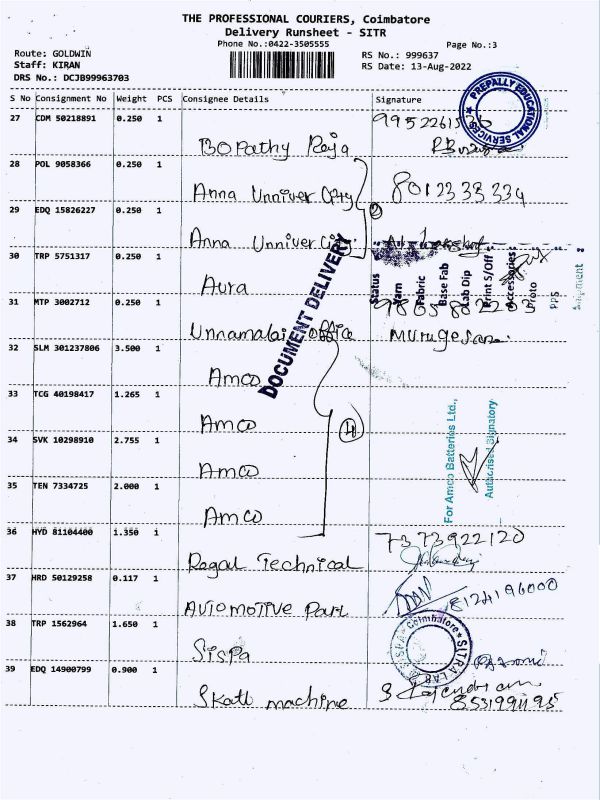 THE PROFESSIONAL COURIERS, Coimbatore
Delivery Runsheet - SITR
Phone No.:0422-3505555
Page No.:3
Route: GOLDWIN
RS No.: 999637
Staff: KIRAN
RS Date: 13-Aug-2022
DRS No.: DCJB99963703
S No Consignment No Weight PCS Consignee Details Signature
27 CDM 50218891 0.250 1
Bopathy Raja
PREPALLY EDUCATIONAL SERVICES
28 POL 9058366 0.250 1
Anna Univer City 8012333334
29 EDQ 15826227 0.250 1
Anna Univer City
2
30 TRP 5751317 0.250 1
Aura
DOCUMENT DELIVERY
Status
Yarn
Fabric
Base Fab
Lab Dip
Print S/Off
Accessories
Proto
PPS
Shipment
31 MTP 3002712 0.250 1
9865802203
Unnamalai office Murugesan
32 SLM 301237806 3.500 1
Amco
33 TCG 40198417 1.265 1
Amco
4
34 SVK 10298910 2.755 1
Amco
For Amco Batteries Ltd.,
Authorised Signatory
35 TEN 7334725 2.000 1
Amco
36 HYD 81104400 1.350 1
7373922120
Regal Technical
37 HRD 50129258 0.117 1
8124196000
Automotive Part
38 TRP 1562964 1.650 1
Sispa
SISPA Coimbatore SITRA LAB
39 EDQ 14900799 0.900 1
S Rajendran
Skatl machine 8531991195